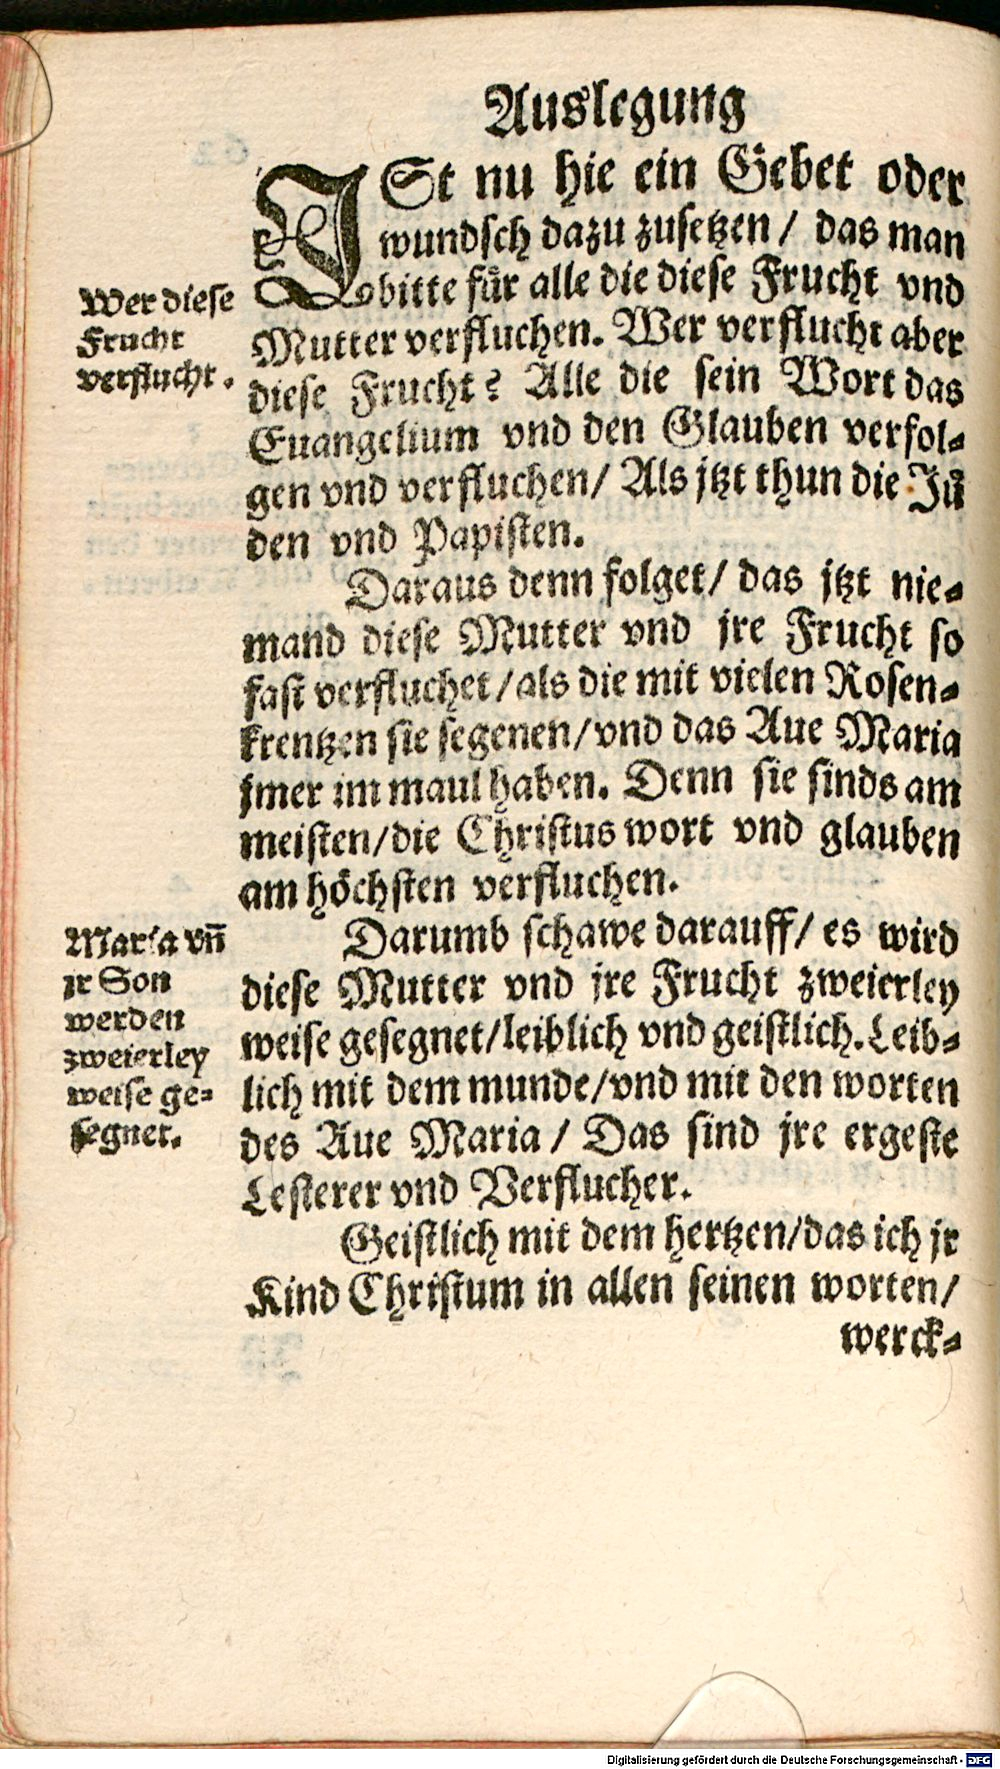 Auslegung
ISt nu hie ein Gebet oder
wundsch dazu zusetzen / das man
bitte fůr alle die diese Frucht vnd
Mutter verfluchen. Wer verflucht aber
diese Frucht? Alle die sein Wort das
Euangelium vnd den Glauben verfol-
gen vnd verfluchen/ Als jtzt thun die Jů
den vnd Papisten.
Daraus denn folget/ das jtzt nie-
mand diese Mutter vnd jre Frucht so
fast verfluchet/als die mit vielen Rosen-
krentzen sie segenen/vnd das Aue Maria
jmer im maul haben. Denn sie sinds am
meisten/die Christus wort vnd glauben
am hӧchsten verfluchen.
Darumb schawe darauff/ es wird
diese Mutter vnd jre Frucht zweierley
weise gesegnet/leiblich vnd geistlich. Leib-
lich mit dem munde/vnd mit den worten
des Aue Maria / Das sind jre ergeste
Lesterer vnd Verflucher.
Geistlich mit dem hertzen/das ich jr
Kind Christum in allen seinen worten/
werck-
Wer diese
Frucht
verflucht.
Maria vn̄
jr Son
werden
zweierley
weise ge-
segnet.
Digitalisierung gefördert durch die Deutsche Forschungsgemeinschaft - DFG